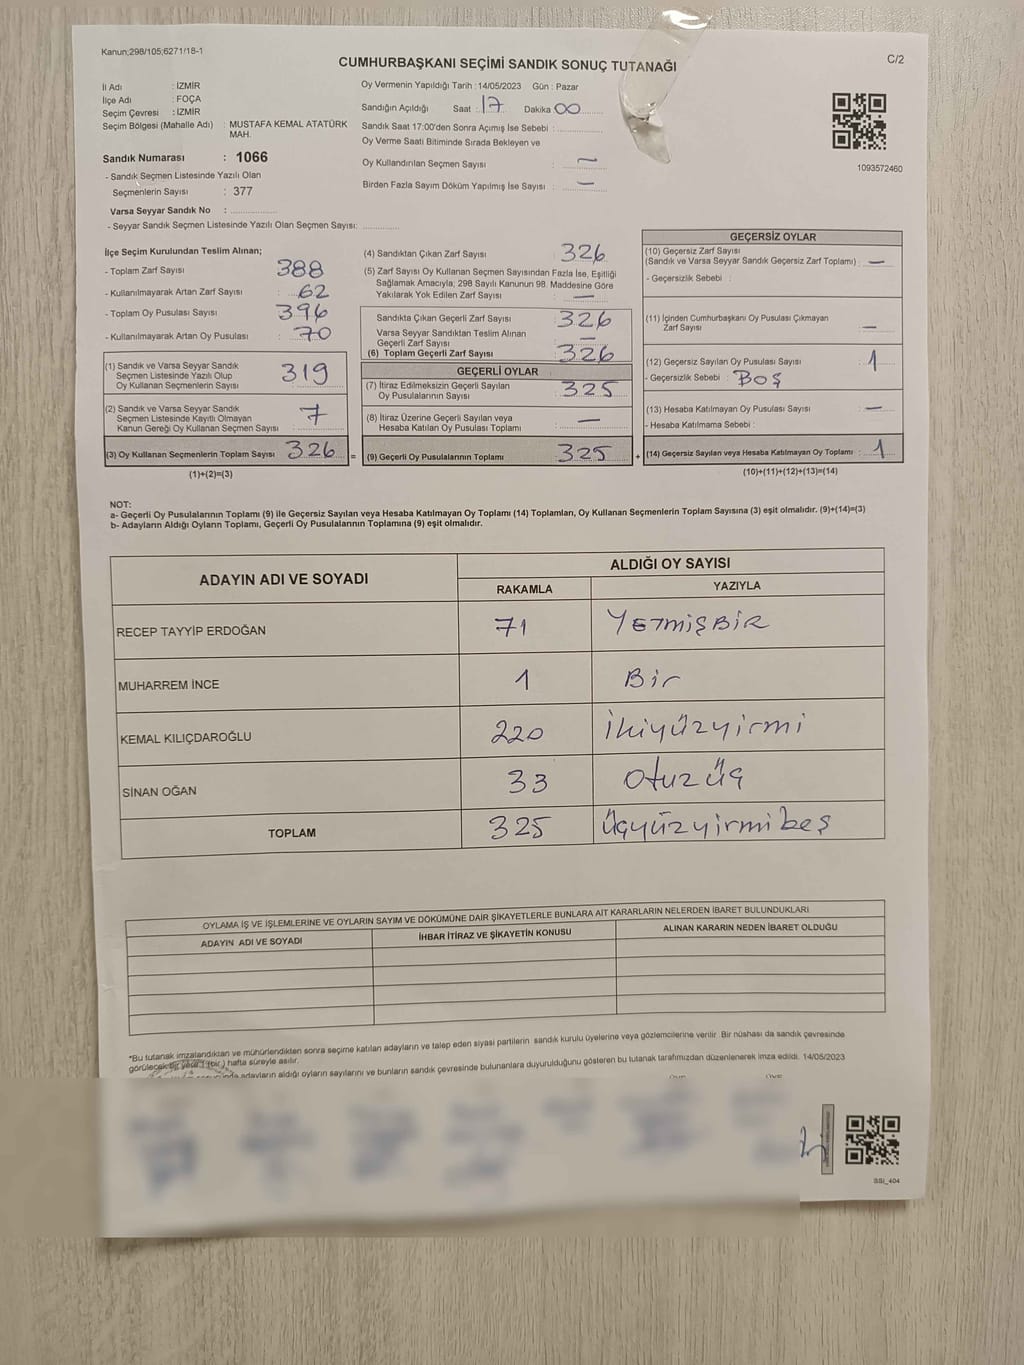 Kanun;298/105;6271/18-1
CUMHURBAŞKANI SEÇİMİ SANDIK SONUÇ TUTANAĞI
C/2
İl Adı : İZMİR
İlçe Adı : FOÇA
Seçim Çevresi : İZMİR
Seçim Bölgesi (Mahalle Adı) : MUSTAFA KEMAL ATATÜRK
MAH.
Sandık Numarası : 1066
- Sandık Seçmen Listesinde Yazılı Olan
Seçmenlerin Sayısı : 377
Varsa Seyyar Sandık No : ...............
- Seyyar Sandık Seçmen Listesinde Yazılı Olan Seçmen Sayısı: ............
Oy Vermenin Yapıldığı Tarih : 14/05/2023 Gün : Pazar
Sandığın Açıldığı Saat : 17 Dakika 00
Sandık Saat 17:00'den Sonra Açımış İse Sebebi : ...............
Oy Verme Saati Bitiminde Sırada Bekleyen ve
Oy Kullandırılan Seçmen Sayısı : —
Birden Fazla Sayım Döküm Yapılmış İse Sayısı : —
1093572460
İlçe Seçim Kurulundan Teslim Alınan;
- Toplam Zarf Sayısı : 388
- Kullanılmayarak Artan Zarf Sayısı : 62
- Toplam Oy Pusulası Sayısı : 396
- Kullanılmayarak Artan Oy Pusulası : 70
(1) Sandık ve Varsa Seyyar Sandık
Seçmen Listesinde Yazılı Olup
Oy Kullanan Seçmenlerin Sayısı : 319
(2) Sandık ve Varsa Seyyar Sandık
Seçmen Listesinde Kayıtlı Olmayan
Kanun Gereği Oy Kullanan Seçmen Sayısı : 7
(3) Oy Kullanan Seçmenlerin Toplam Sayısı : 326
(1)+(2)=(3)
=
(4) Sandıktan Çıkan Zarf Sayısı : 326
(5) Zarf Sayısı Oy Kullanan Seçmen Sayısından Fazla İse, Eşitliği
Sağlamak Amacıyla; 298 Sayılı Kanunun 98. Maddesine Göre
Yakılarak Yok Edilen Zarf Sayısı : —
Sandıkta Çıkan Geçerli Zarf Sayısı : 326
Varsa Seyyar Sandıktan Teslim Alınan
Geçerli Zarf Sayısı : —
(6) Toplam Geçerli Zarf Sayısı : 326
GEÇERLİ OYLAR
(7) İtiraz Edilmeksizin Geçerli Sayılan
Oy Pusulalarının Sayısı : 325
(8) İtiraz Üzerine Geçerli Sayılan veya
Hesaba Katılan Oy Pusulası Toplamı : —
(9) Geçerli Oy Pusulalarının Toplamı : 325
+
GEÇERSİZ OYLAR
(10) Geçersiz Zarf Sayısı
(Sandık ve Varsa Seyyar Sandık Geçersiz Zarf Toplamı) : —
- Geçersizlik Sebebi :
(11) İçinden Cumhurbaşkanı Oy Pusulası Çıkmayan
Zarf Sayısı : —
(12) Geçersiz Sayılan Oy Pusulası Sayısı : 1
- Geçersizlik Sebebi : BOŞ
(13) Hesaba Katılmayan Oy Pusulası Sayısı : —
- Hesaba Katılmama Sebebi :
(14) Geçersiz Sayılan veya Hesaba Katılmayan Oy Toplamı : 1
(10)+(11)+(12)+(13)=(14)
NOT:
a- Geçerli Oy Pusulalarının Toplamı (9) ile Geçersiz Sayılan veya Hesaba Katılmayan Oy Toplamı (14) Toplamları, Oy Kullanan Seçmenlerin Toplam Sayısına (3) eşit olmalıdır. (9)+(14)=(3)
b- Adayların Aldığı Oyların Toplamı, Geçerli Oy Pusulalarının Toplamına (9) eşit olmalıdır.
ADAYIN ADI VE SOYADI
ALDIĞI OY SAYISI
RAKAMLA YAZIYLA
RECEP TAYYİP ERDOĞAN 71 YETMİŞBİR
MUHARREM İNCE 1 Bir
KEMAL KILIÇDAROĞLU 220 İkiyüzyirmi
SİNAN OĞAN 33 Otuzüç
TOPLAM 325 Üçyüzyirmibeş
OYLAMA İŞ VE İŞLEMLERİNE VE OYLARIN SAYIM VE DÖKÜMÜNE DAİR ŞİKAYETLERLE BUNLARA AİT KARARLARIN NELERDEN İBARET BULUNDUKLARI
ADAYIN ADI VE SOYADI İHBAR İTİRAZ VE ŞİKAYETİN KONUSU ALINAN KARARIN NEDEN İBARET OLDUĞU
*Bu tutanak imzalandıktan ve mühürlendikten sonra seçime katılan adayların ve talep eden siyasi partilerin sandık kurulu üyelerine veya gözlemcilerine verilir. Bir nüshası da sandık çevresinde
görülecek bir yere 1 (bir ) hafta süreyle asılır.
adayların aldığı oyların sayılarını ve bunların sandık çevresinde bulunanlara duyurulduğunu gösteren bu tutanak tarafımızdan düzenlenerek imza edildi. 14/05/2023
SSI_404